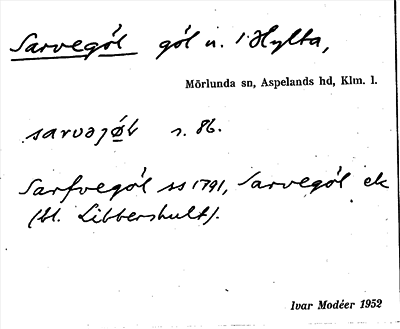 Sarvegöl göl n. i Hylta,
Mörlunda sn, Aspelands hd, Klm. l.
s. 86.
Sarfvegöl ss 1791, Sarvegöl ek
(bl. Libbershult).
Ivar Modéer 1952